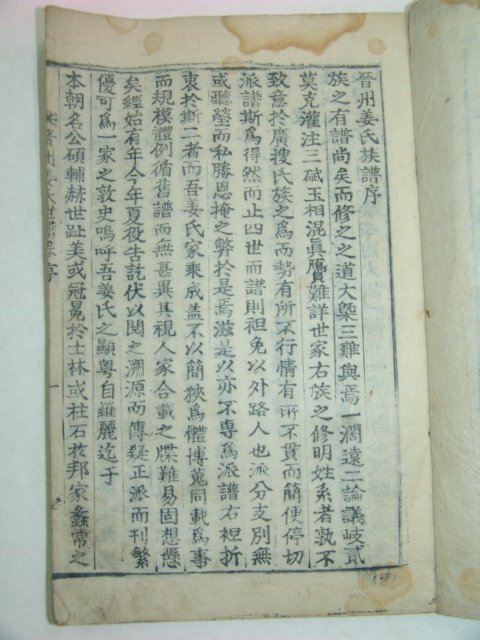 晉州姜氏族譜序
族之有譜尚矣而修之之道大槩三難與焉一濶遠二論議岐貳
莫克灌注三碔玉相混眞贋難詳世家右族之修明姓系者孰不
致意於廣搜氏族之爲而勢有所不行情有所不貫而簡便停切
派譜斯爲得然而止四世而譜則袒免以外路人也派分支別無
或聽瑩而私勝恩掩之弊於是焉滋是以亦不專爲派譜右袒折
衷於斯二者而吾姜氏家乘成盖不以簡狹爲體博蒐同載爲事
而規模軆例循舊譜而無甚異其視人家合載之牒難易固想懸
矣經始有年今年夏役告訖伏以閱之溯源而傳疑正派而刊繁
優可爲一家之敦史嗚呼吾姜氏之顯粤自羅麗迄于
本朝名公碩輔赫世趾美或冠冕於士林或柱石於邦家彝常之
晉州姜氏
序
一